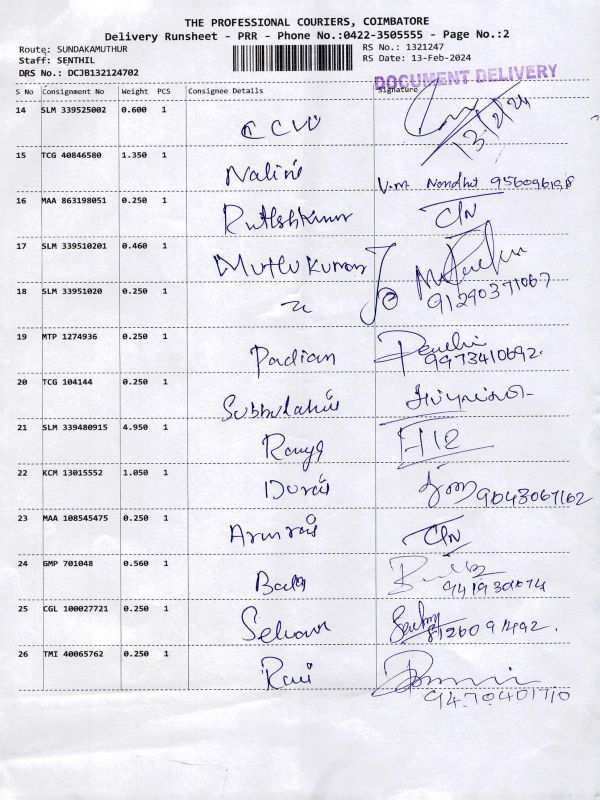 THE PROFESSIONAL COURIERS, COIMBATORE
Delivery Runsheet - PRR - Phone No.:0422-3505555 - Page No.:2
Route: SUNDAKAMUTHUR RS No.: 1321247
Staff: SENTHIL RS Date: 13-Feb-2024
DRS No.: DCJB132124702
DOCUMENT DELIVERY
S No Consignment No Weight PCS Consignee Details Signature
14 SLM 339525002 0.600 1 13/2/24
15 TCG 40846580 1.350 1 Nalini V.M
16 MAA 863198051 0.250 1 C/N
17 SLM 339510201 0.460 1 Muthu Kumar
91290371067
18 SLM 33951020 0.250 1
19 MTP 1274936 0.250 1 Padian
9973410692.
20 TCG 104144 0.250 1
21 SLM 339480915 4.950 1
22 KCM 13015552 1.050 1 Durai 9043067162
23 MAA 108545475 0.250 1 Arunraj C/N
24 GMP 701048 0.560 1 Bala
25 CGL 100027721 0.250 1
26 TMI 40065762 0.250 1 Ravi